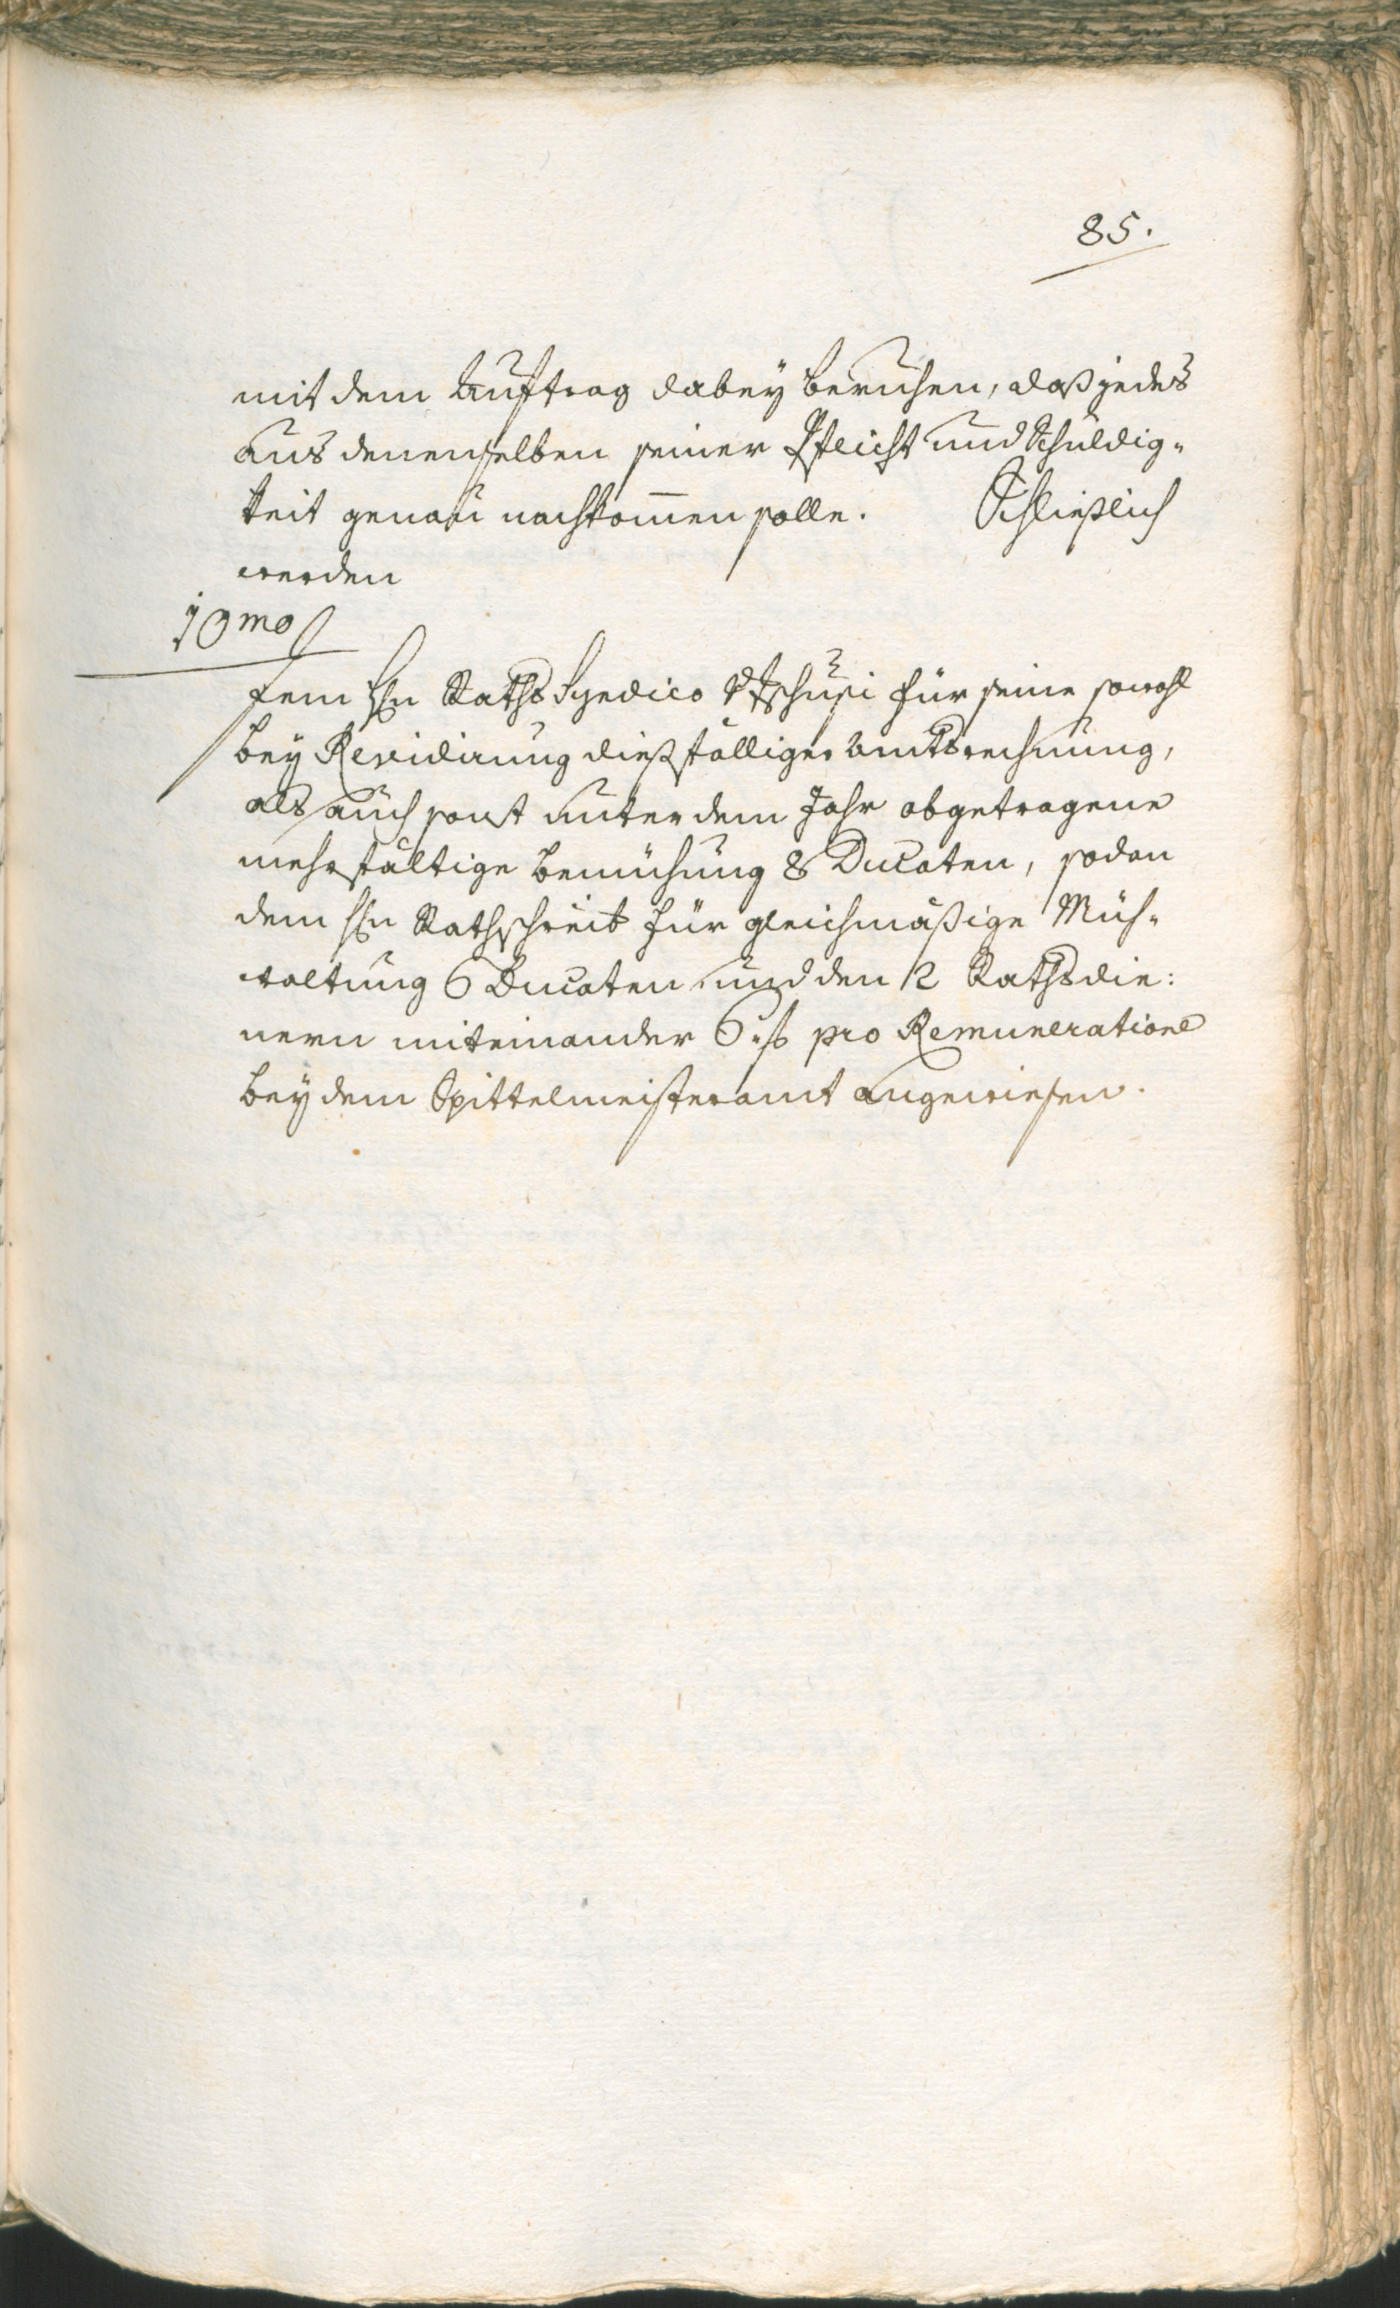 85.
mit dem Auftrag dabey beruhen, daß jedes
aus denenselben seiner Pflicht und Schuldig-
keit genau nachkom̅en solle. Schließlich
werden
10mo
Hn Raths Syndico für seine sowohl
bey Revidirung dießfälliger Amtsrechnung,
als auch sonst unter dem Jahr abgetragene
mehrfältige Bemühung 8 Ducaten, sodan
dem Hn Rathschreib für gleichmäßige Müh-
waltung 6 Ducaten und den 2 Rathsdie:
nern miteinander 6 pro Remuneratione
bey dem Spittelmeisteramt angewiesen.